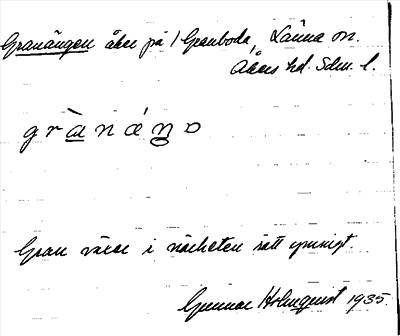 Granängen åker på 1 Granboda, Länna sn.
Åkers hd. Sdm. l.
grànáŋo
Gran växer i närheten rätt ymnigt.
Gunnar Holmquist 1935.